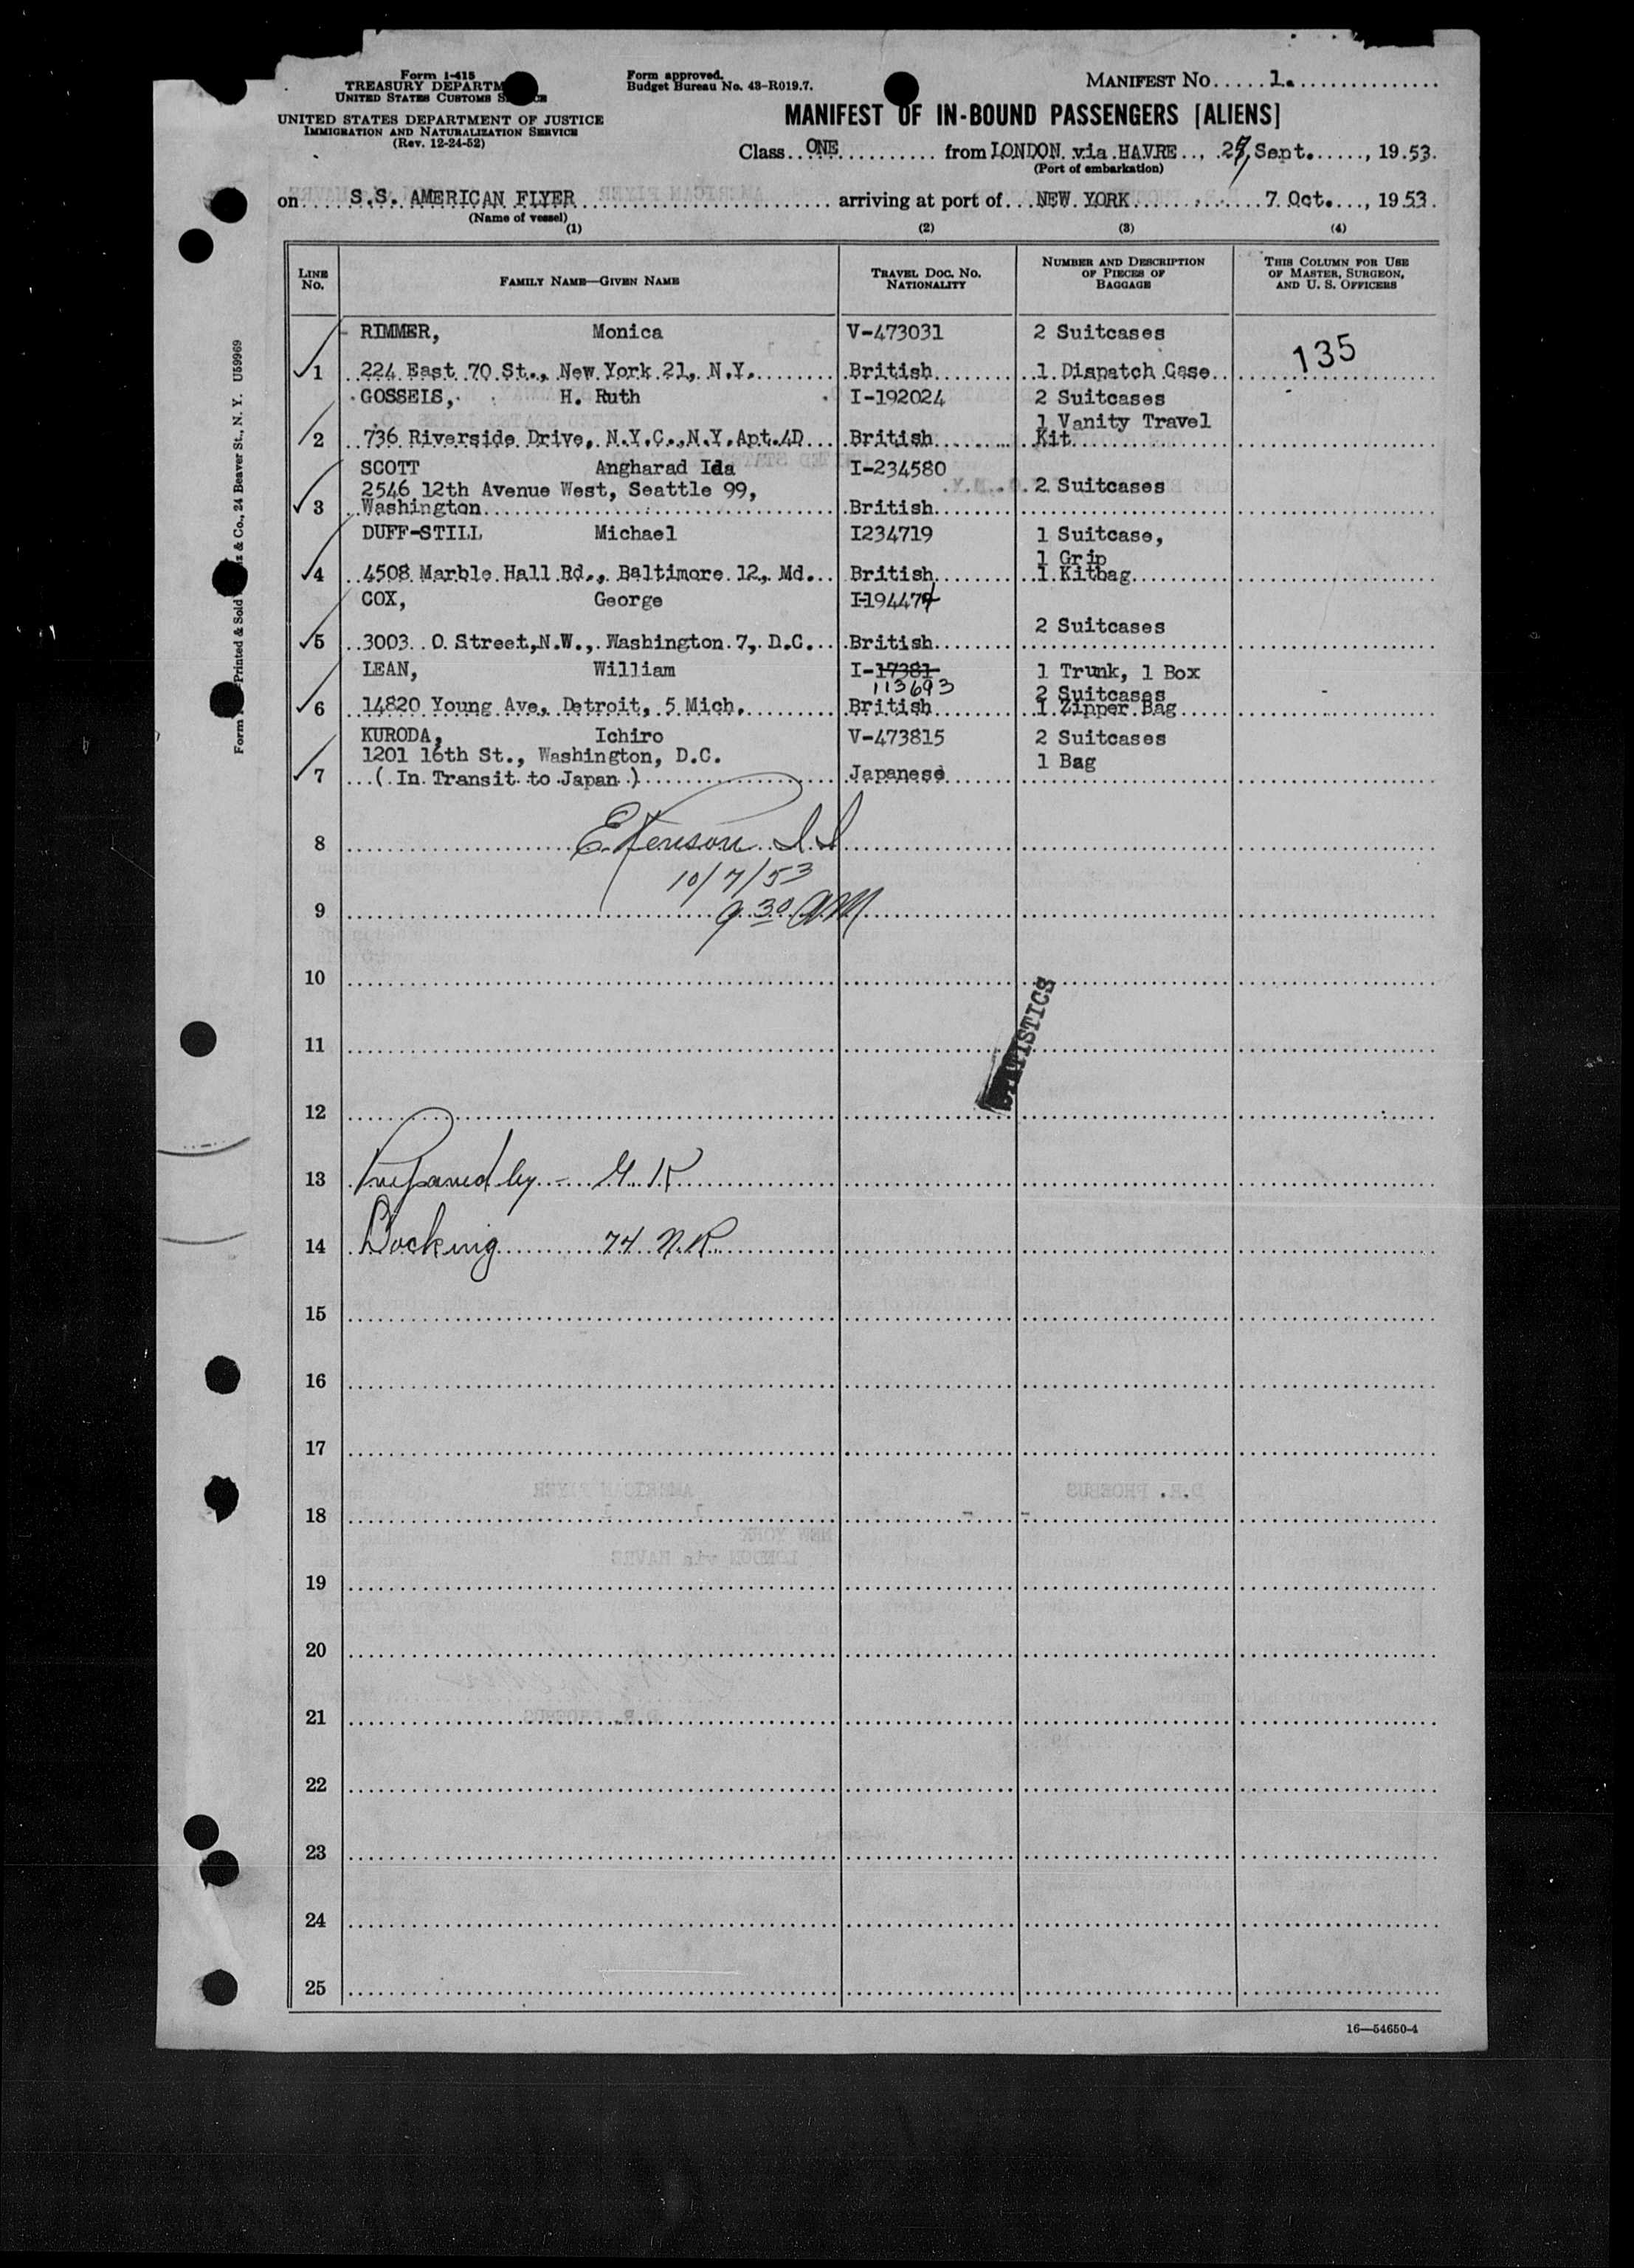 Form I-415
TREASURY DEPARTM
UNITED STATES CUSTOMS S CE
UNITED STATES DEPARTMENT OF JUSTICE
IMMIGRATION AND NATURALIZATION SERVICE
(Rev. 12-24-52)
Form approved.
Budget Bureau No. 43-R019.7.
MANIFEST NO. 1.
MANIFEST OF IN-BOUND PASSENGERS [ALIENS]
Class ONE from LONDON via HAVRE, Sept., 1953.
(Port of embarkation)
on S.S. AMERICAN FLYER arriving at port of NEW YORK 7 Oct., 1953.
(Name of vessel)
(1) (2) (3) (4)
LINE NO.
FAMILY NAME—GIVEN NAME
TRAVEL DOC. NO. NATIONALITY
NUMBER AND DESCRIPTION OF PIECES OF BAGGAGE
THIS COLUMN FOR USE OF MASTER, SURGEON, AND U. S. OFFICERS
RIMMER, Monica V-473031 2 Suitcases
135
1 224 East 70 St., New York 21, N.Y. British 1 Dispatch Case
GOSSEIS, H. Ruth I-192024 2 Suitcases
1 Vanity Travel
2 736 Riverside Drive, N.Y.C., N.Y. Apt.4D British Kit
SCOTT Angharad Ida I-234580
2546 12th Avenue West, Seattle 99, 2 Suitcases
3 Washington British
DUFF-STILL Michael I234719 1 Suitcase,
1 Grip
4 4508 Marble Hall Rd., Baltimore 12, Md. British 1 Kitbag
COX, George I-194474
2 Suitcases
5 3003 O Street, N.W., Washington 7, D.C. British
LEAN, William I-17381 1 Trunk, 1 Box
113693 2 Suitcases
6 14820 Young Ave, Detroit, 5 Mich. British 1 Zipper Bag
KURODA, Ichiro V-473815 2 Suitcases
1201 16th St., Washington, D.C. 1 Bag
7 ( In Transit to Japan ) Japanese
8 I.I
10/7/53
9 9.30 AM
10
STATISTICS
11
12
13 Prepared by - G.K
14 Docking 74 N.R.
15
16
17
18
19
20
21
22
23
24
25
16—54650-4
Printed & Sold & Co., 24 Beaver St., N. Y. U59969